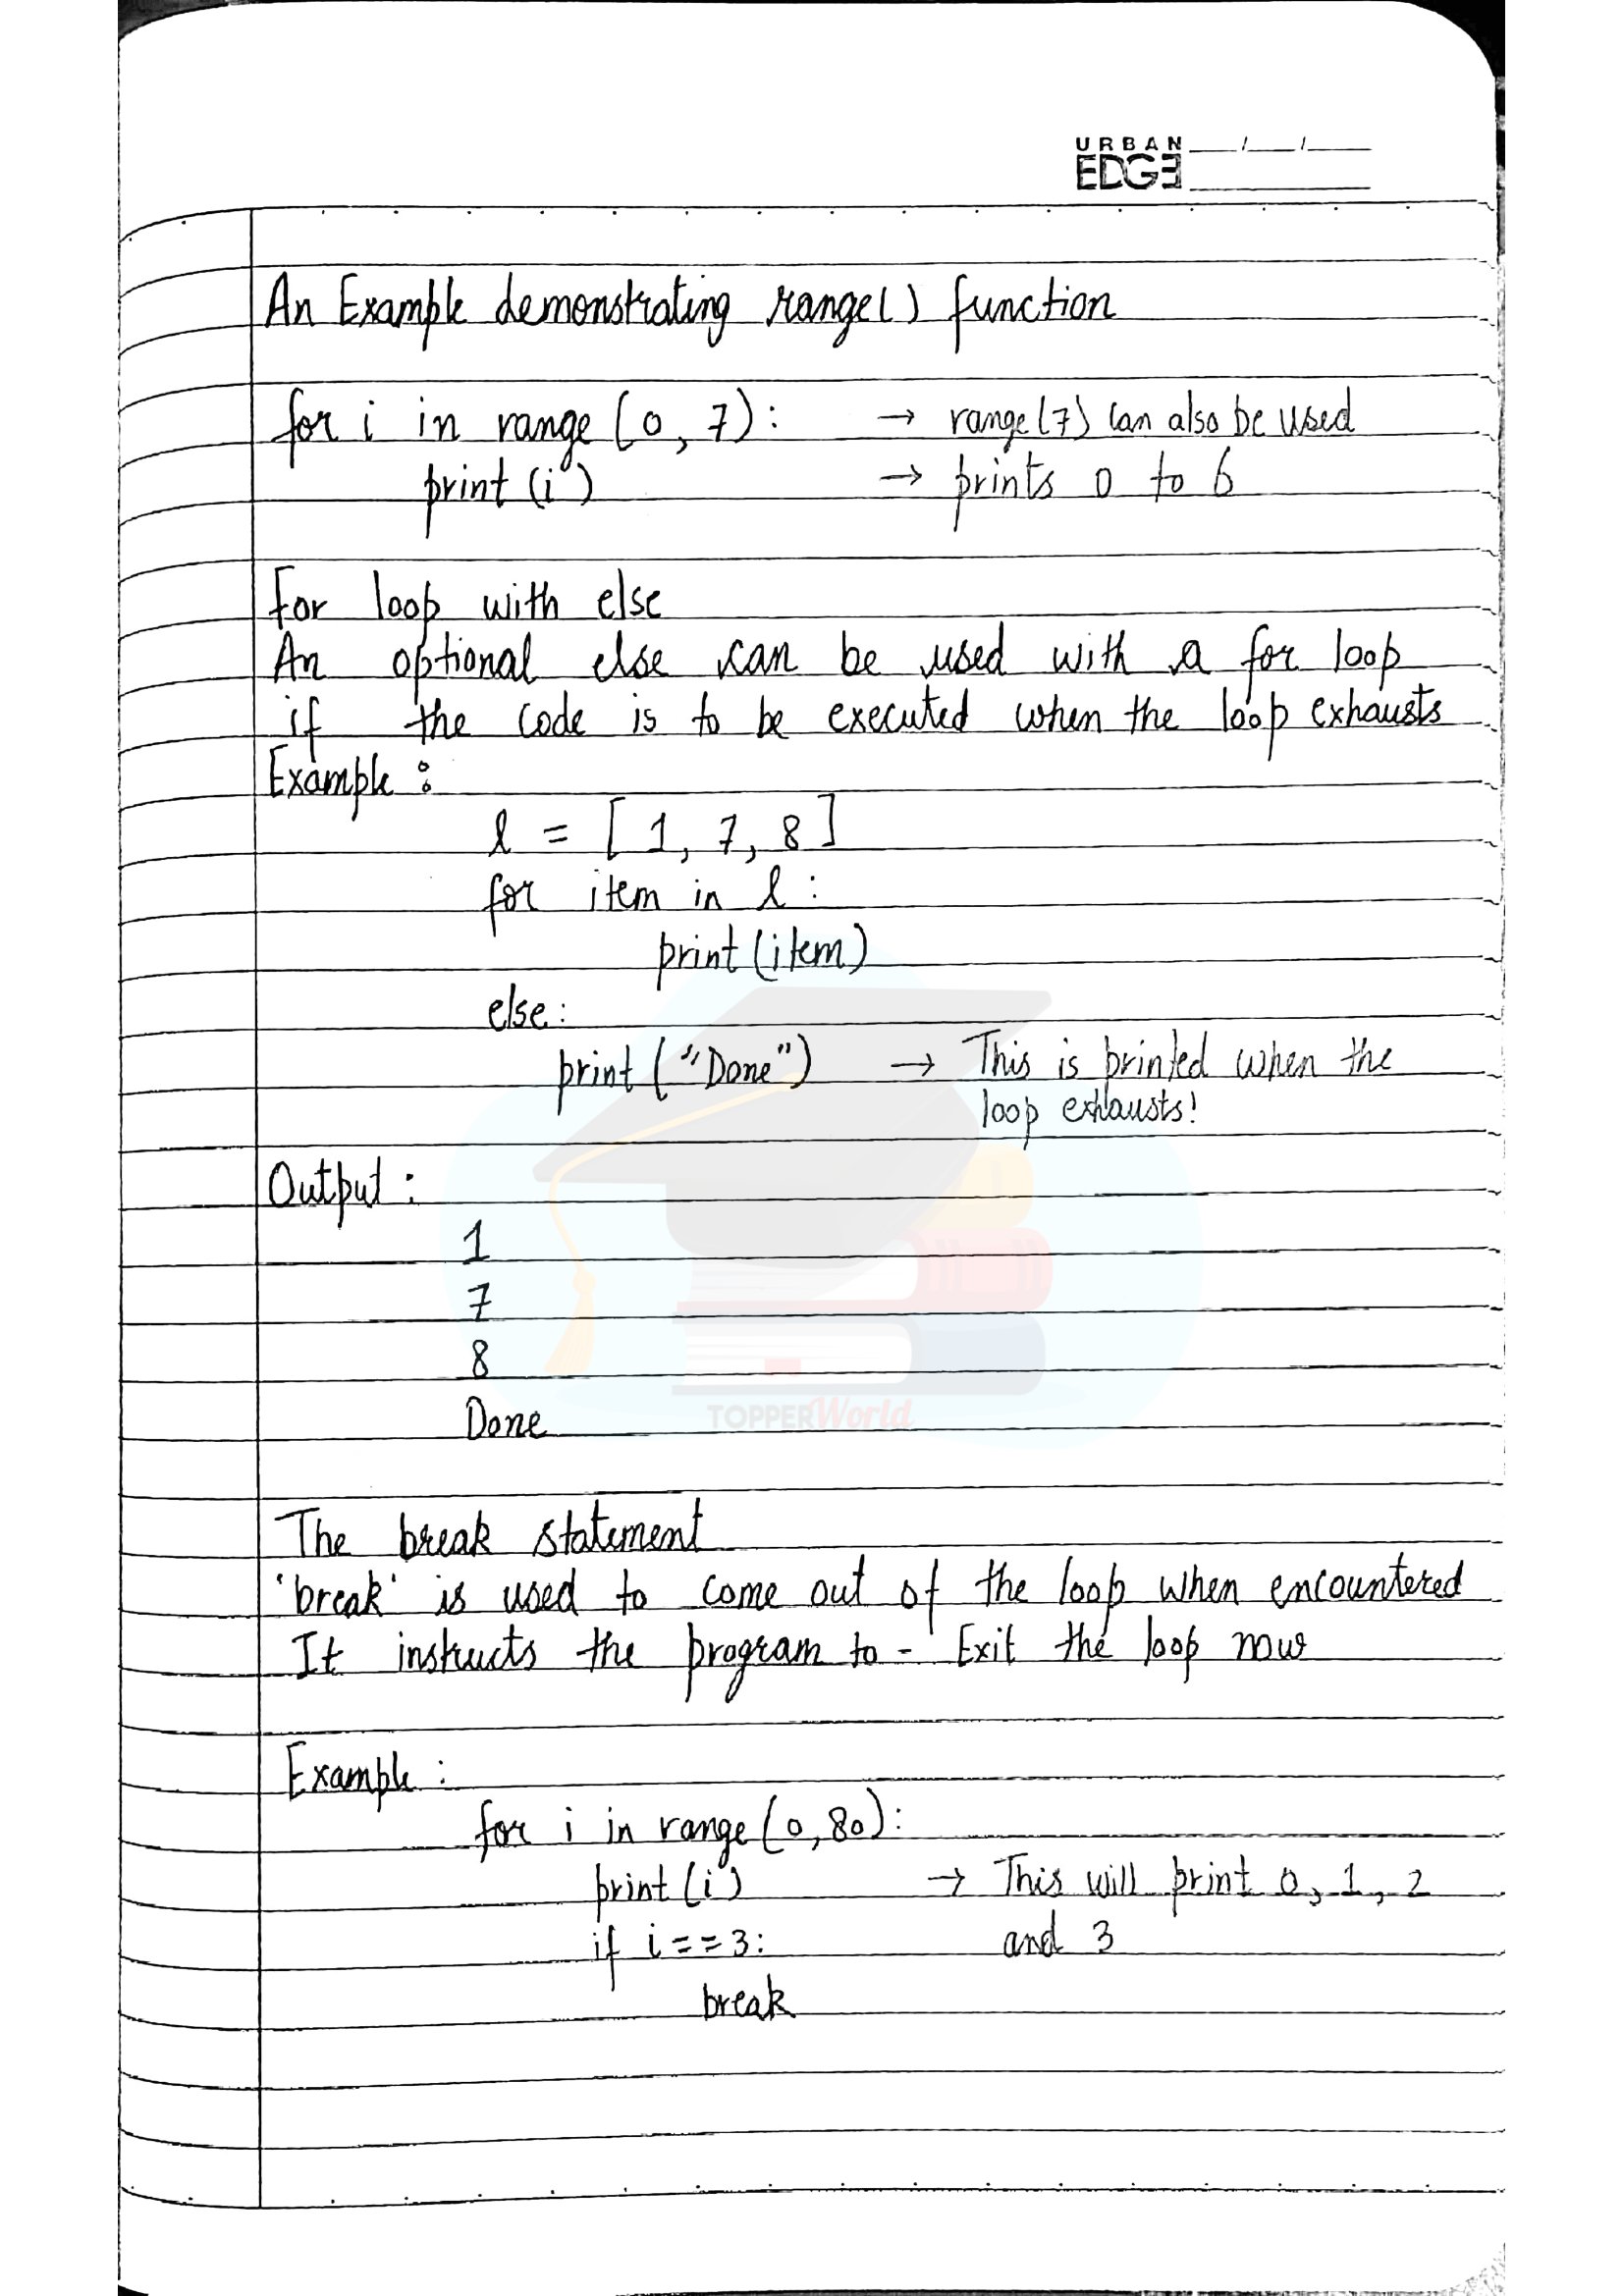 URBAN
EDGE
An Example demonstrating range() function
for i in range (0, 7): → range(7) can also be used
print (i) → prints 0 to 6
For loop with else
An optional else can be used with a for loop
if the code is to be executed when the loop exhausts
Example :
l = [1, 7, 8]
for item in l :
print (item)
else :
print ("Done") → This is printed when the
loop exhausts!
Output :
1
7
8
Done
TOPPERWorld
The break statement
'break' is used to come out of the loop when encountered
It instructs the program to - Exit the loop now
Example :
for i in range (0,80):
print (i) → This will print 0, 1, 2
if i==3: and 3
break